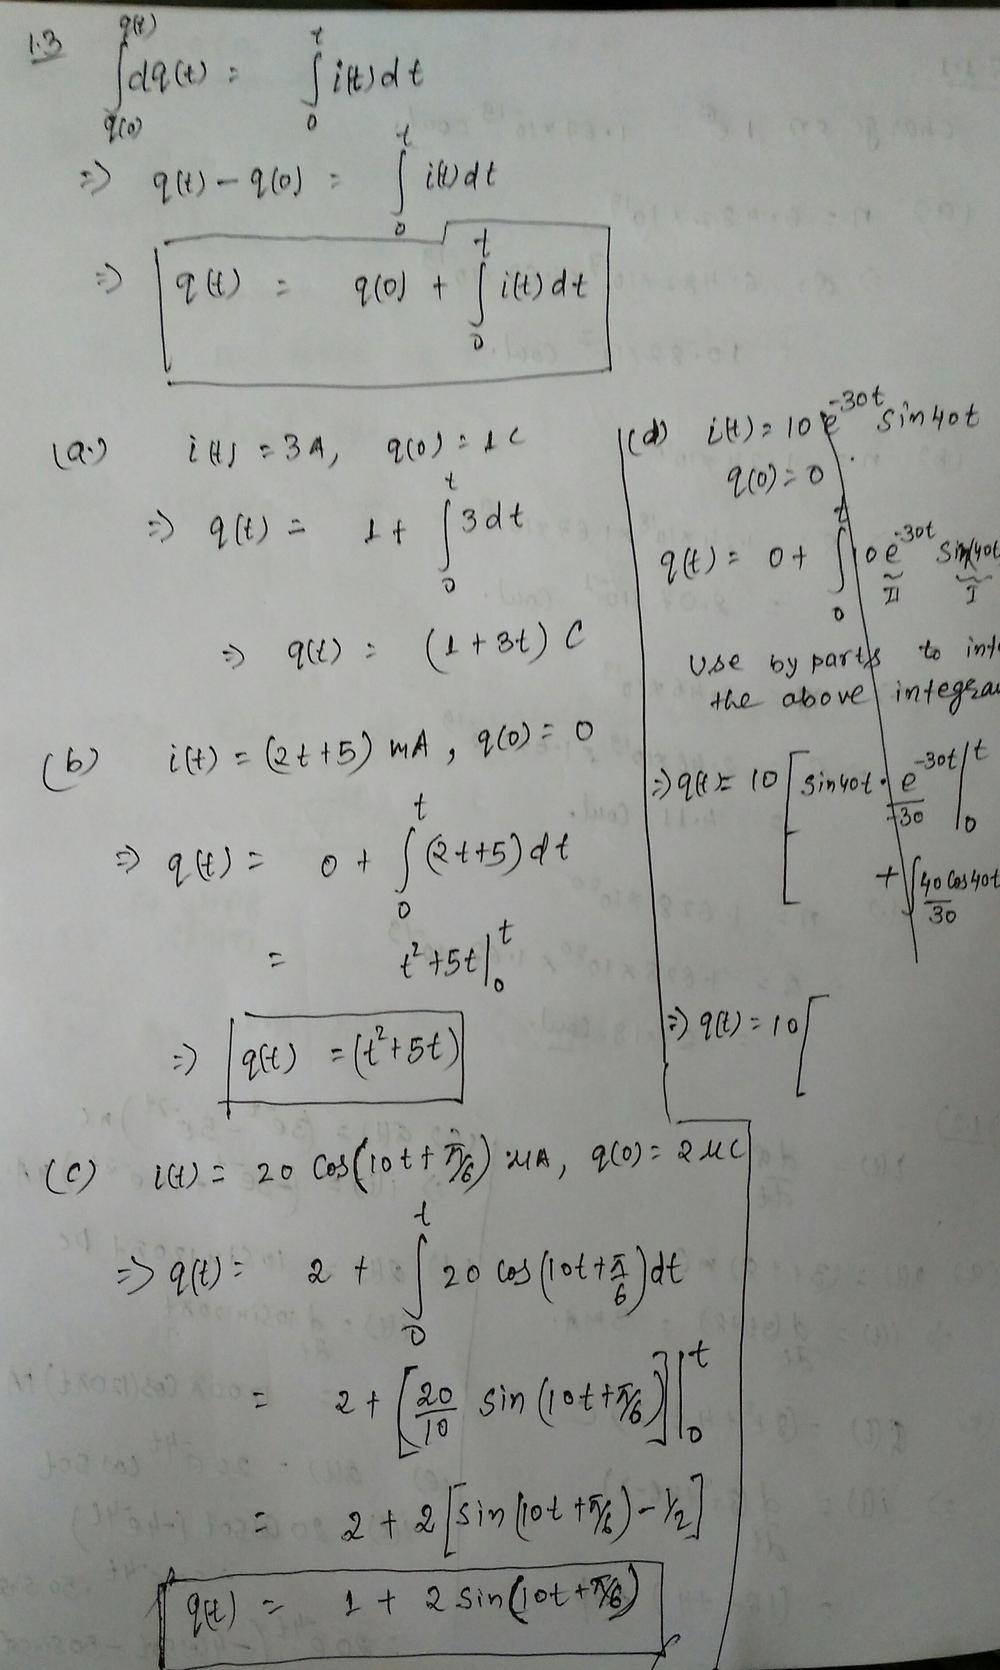 1.3
∫_{q(0)}^{q(t)} dq(t) = ∫_0^t i(t)dt
⇒ q(t) - q(0) = ∫_0^t i(t)dt
⇒ q(t) = q(0) + ∫_0^t i(t)dt
(a.) i(t) = 3A, q(0) = 1C
⇒ q(t) = 1 + ∫_0^t 3dt
⇒ q(t) = (1+3t) C
(b) i(t) = (2t+5) mA, q(0) = 0
⇒ q(t) = 0 + ∫_0^t (2t+5)dt
= t²+5t|_0^t
⇒ q(t) = (t²+5t)
(c) i(t) = 20 cos(10t+π/6) μA, q(0) = 2μC
⇒ q(t) = 2 + ∫_0^t 20 cos(10t+π/6)dt
= 2 + [20/10 sin(10t+π/6)]|_0^t
= 2 + 2[sin(10t+π/6) - 1/2]
q(t) = 1 + 2 sin(10t+π/6)
(d) i(t) = 10e^{-30t} sin40t
q(0) = 0
q(t) = 0 + ∫_0^t 10e^{-30t} sin(40t
II I
Use by parts to int
the above integra
⇒ q(t) = 10[sin40t · e^{-30t}/-30|_0^t
+ ∫40cos40t/30
⇒ q(t) = 10[